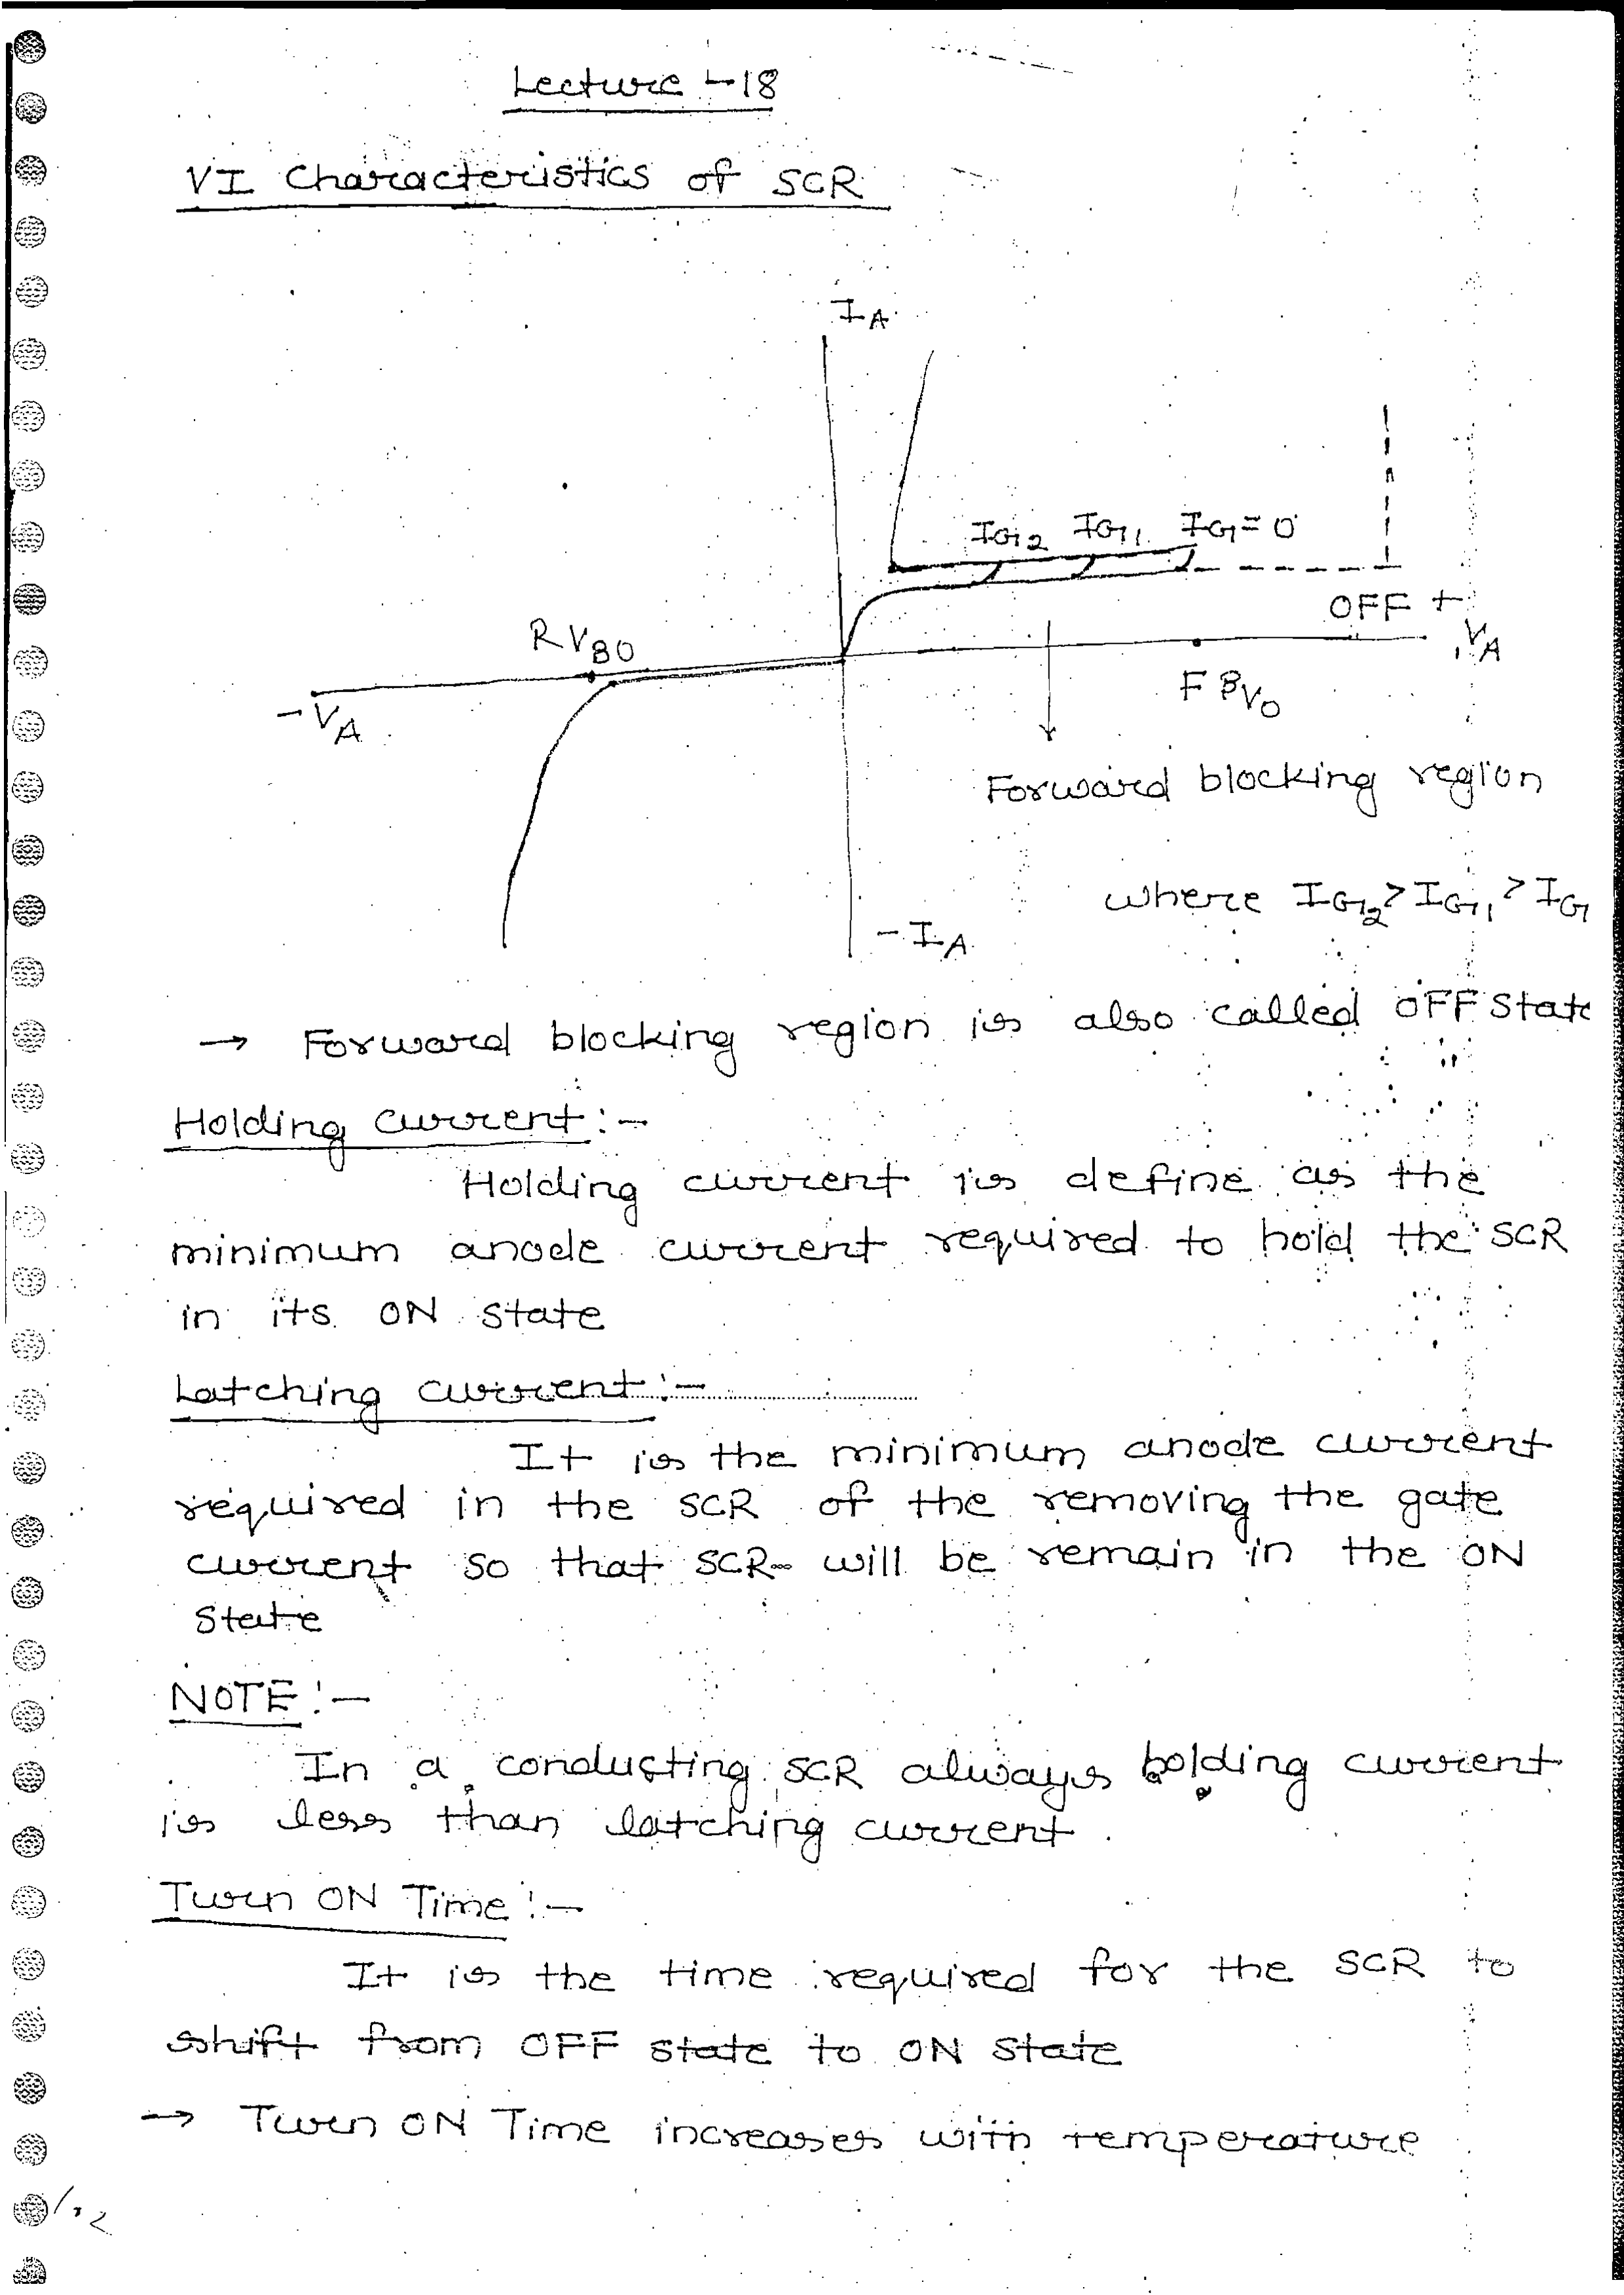 Lecture -18
VI Characteristics of SCR
IA
IG2 IG1 IG = 0
OFF +
RVBO
VA
-VA
FBVO
Forward blocking region
where IG2 > IG1 > IG
-IA
→ Forward blocking region is also called OFF State
Holding current :-
Holding current is define as the
minimum anode current required to hold the SCR
in its ON state
Latching current :-
It is the minimum anode current
required in the SCR of the removing the gate
current so that SCR will be remain in the ON
State
NOTE :-
In a conducting SCR always holding current
is less than latching current.
Turn ON Time :-
It is the time required for the SCR to
shift from OFF state to ON State
→ Turn ON Time increases with temperature